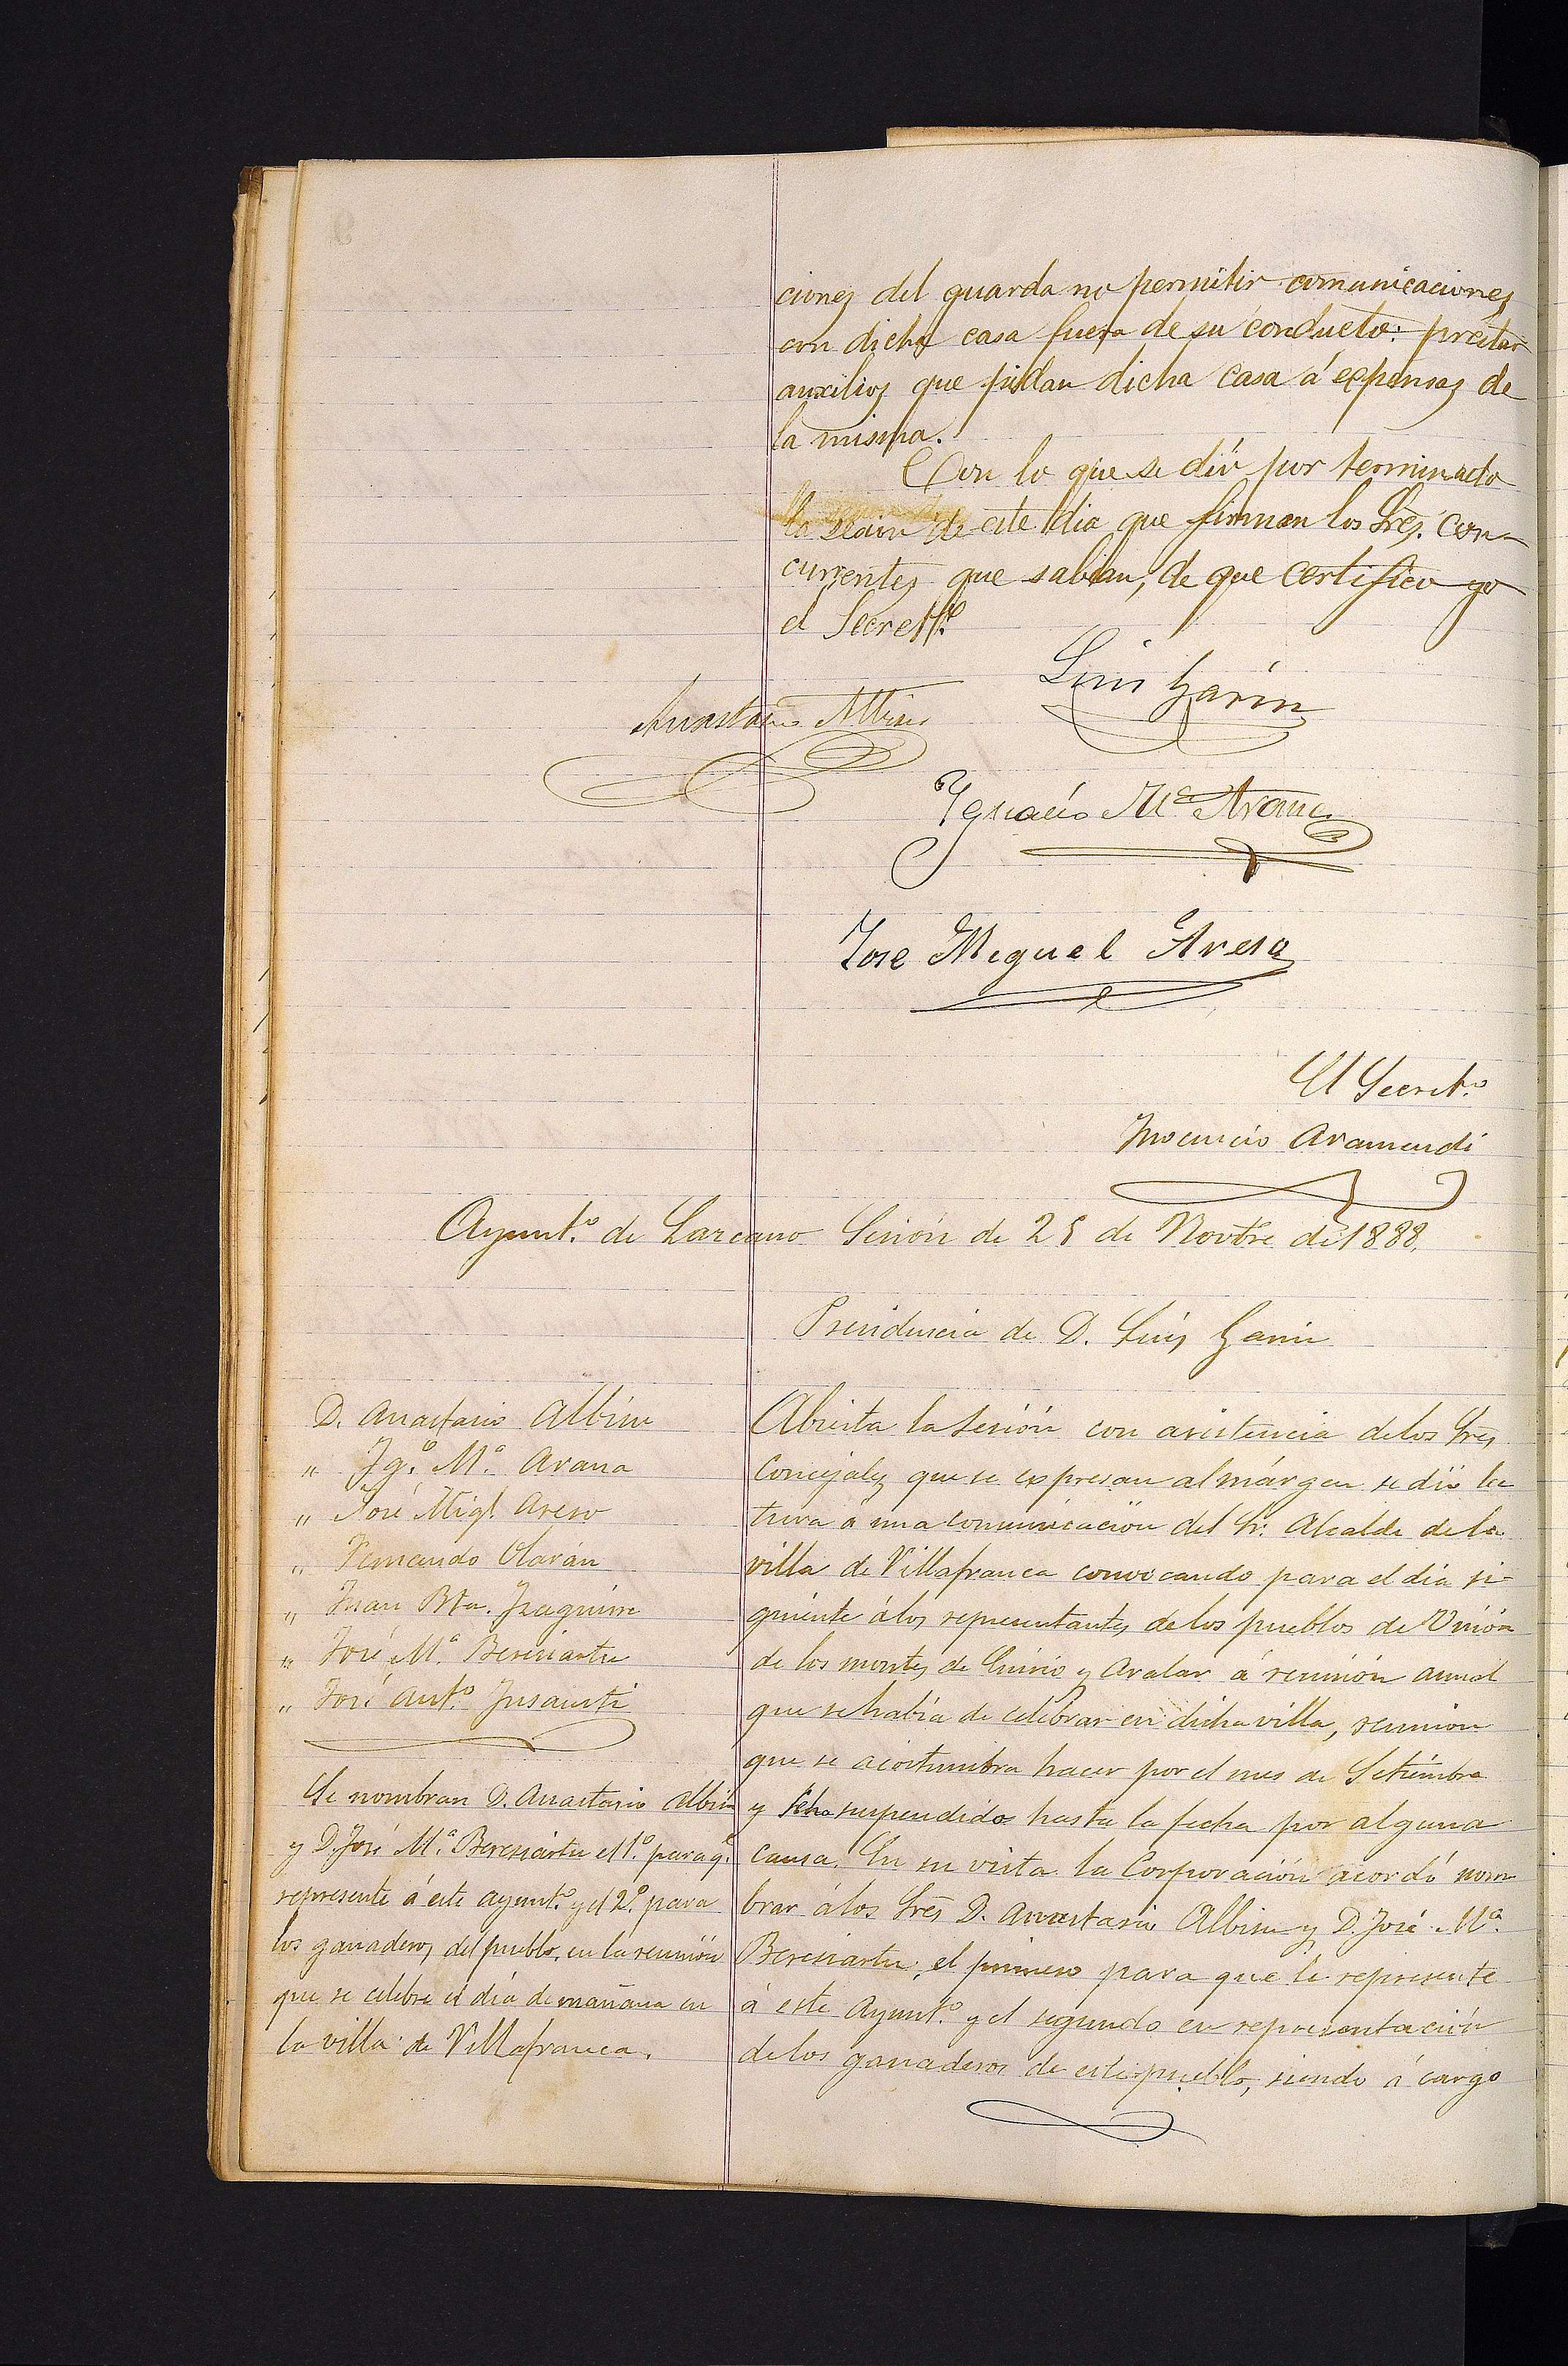 ciones del guarda no permitir comunicaciones
con dicha casa fuera de su conducto: prestar
auxilios que pidan dicha casa á expensas de
la misma.
Con lo que se dió por terminado
la sesion de este dia que firman los Sres. con-
currentes que sabian, de que certifico yo
el Secretº
Luis Garin
Anastasio Albisu
Ygnacio Mª Arana
Jose Miguel Areso
El Secretº
Inocencio Aramendi
Ayuntº de Lazcano Sesión de 25 de Novbre de 1888.
Presidencia de D. Luis Garin
D. Anastasio Albisu
" Igº Mª Arana
" José Migl Areso
" Fernando Olarán
" Juan Bta. Izaguirre
" José Mª Beresiartu
" José Antº Insausti
Se nombran D. Anastasio Albisu
y D. José Mª Beresiartu el 1º para q.e
represente á este ayuntº y el 2º para
los ganaderos del pueblo, en la reunión
que se celebre el día de mañana en
la villa de Villafranca.
Abierta la sesión con asistencia de los Sres
Concejales que se expresan al márgen se dió lec
tura á una comunicación del Sr. Alcalde de la
villa de Villafranca convocando para el día si-
guiente á los representantes de los pueblos de Unión
de los montes de Enirio y Aralar á reunión anual
que se había de celebrar en dicha villa, reunion
que se acostumbra hacer por el mes de Setiembre
y se ha suspendido hasta la fecha por alguna
causa. En su vista la Corporación acordó nom
brar á los Sres D. Anastasio Albisu y D. José Mª
Beresiartu, el primero para que le represente
á este Ayuntº y el segundo en representación
de los ganaderos de este pueblo, siendo á cargo